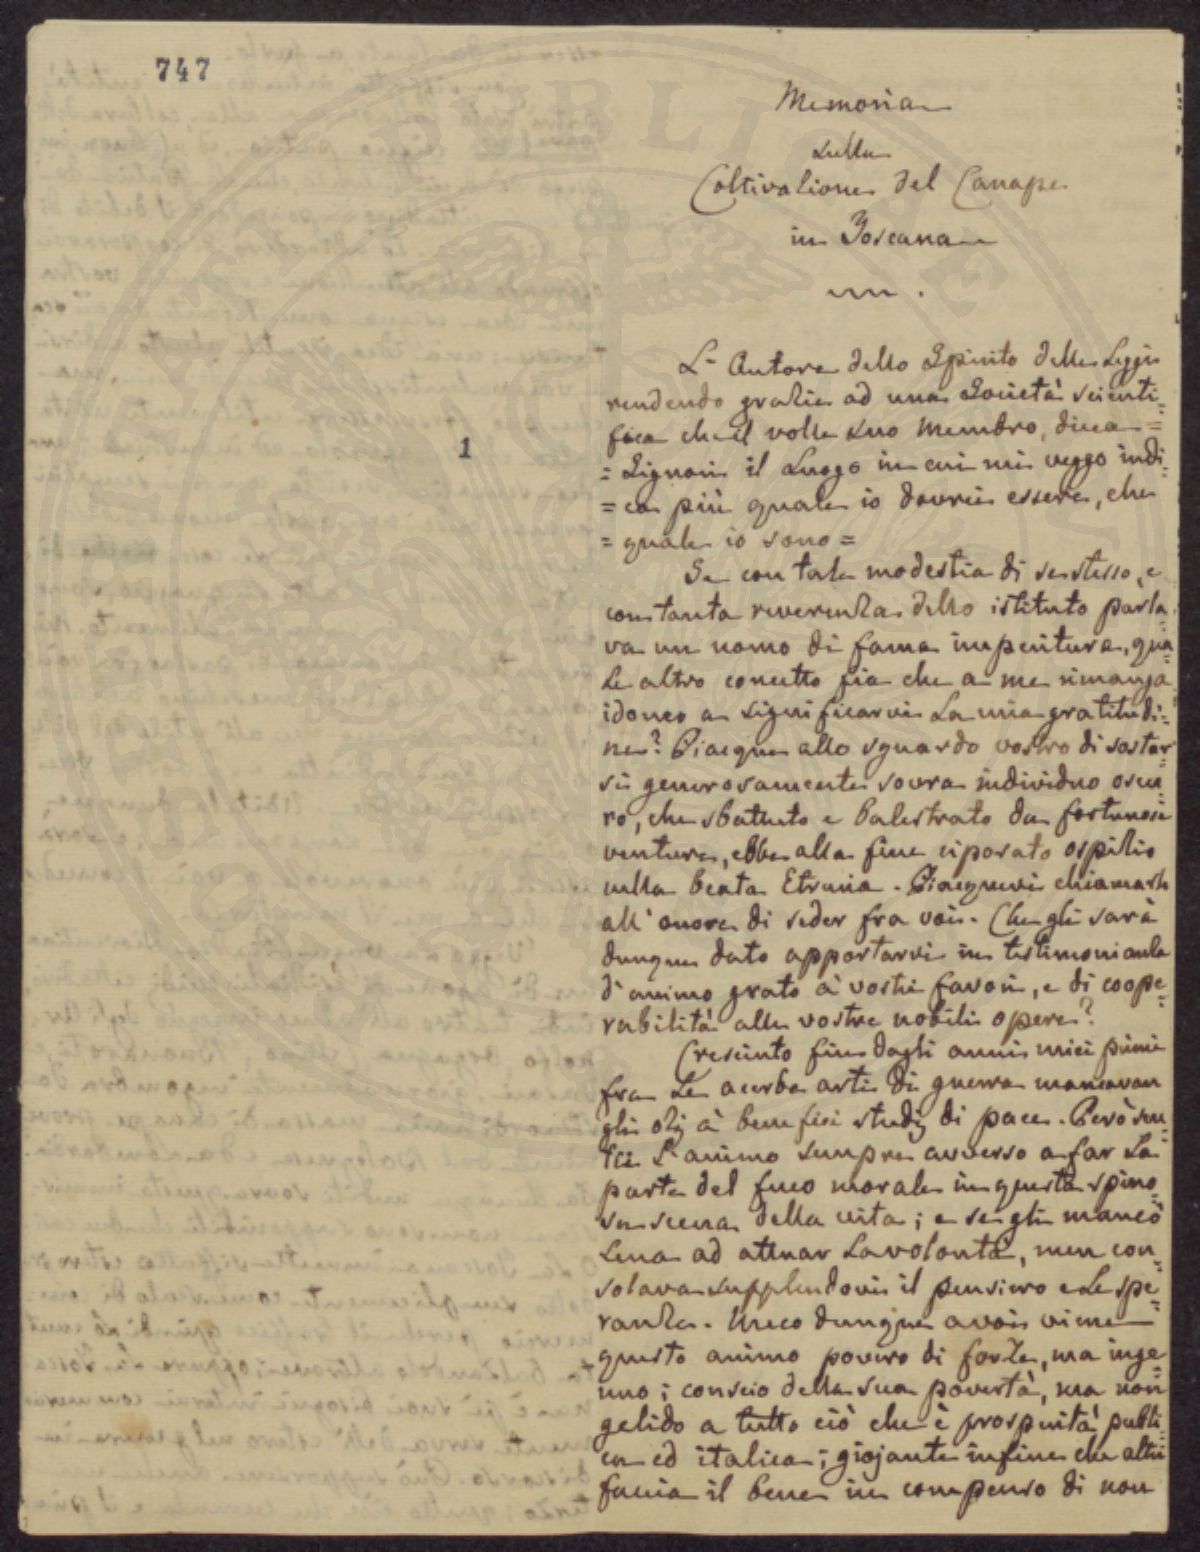 747
Memoria
sulla
Coltivazione del Canape
in Toscana
1
L'Autore dello Spirito delle Leggi
rendendo grazie ad una Società scienti=
fica che il volle suo Membro, dicea =
= Signori il Luogo in cui mi veggo indi=
= ca più quale io dovrei essere, che
= quale io sono =
Se con tale modestia di se stesso, e
con tanta reverenza dello istituto parla=
va un uomo di fama imperitura, qua=
le altro concetto fia che a me rimanga
idoneo a significarvi La mia gratitudi=
ne? Piacque allo sguardo vostro di sostar=
si generosamente sovra individuo oscu=
ro, che sbattuto e balestrato da fortunose
venture, ebbe alla fine riposato ospizio
nella beata Etruria. Piacquevi chiamarlo
all'onore di seder fra voi. Che gli sarà
dunque dato apportarvi in testimonianza
d'animo grato à vostri favori, e di coope=
rabilità alle vostre nobili opere?
Cresciuto fin dagli anni miei primi
fra Le acerbe arti di guerra mancavan
gli ozj à benefici studj di pace. Però sen=
tii L'animo sempre avverso a far La
parte del fuco morale in questa spino=
sa scena della vita; e se gli mancò
Lena ad attuar La volontà, men con=
solava supplendovi il pensiero e Le spe=
ranze. Meco dunque a voi viene
questo animo povero di forze, ma inge=
nuo; conscio della sua povertà, ma non
gelido a tutto ciò che è prosperità pubbli=
ca ed italica; giojante infine che altri
faccia il bene in compenso di non